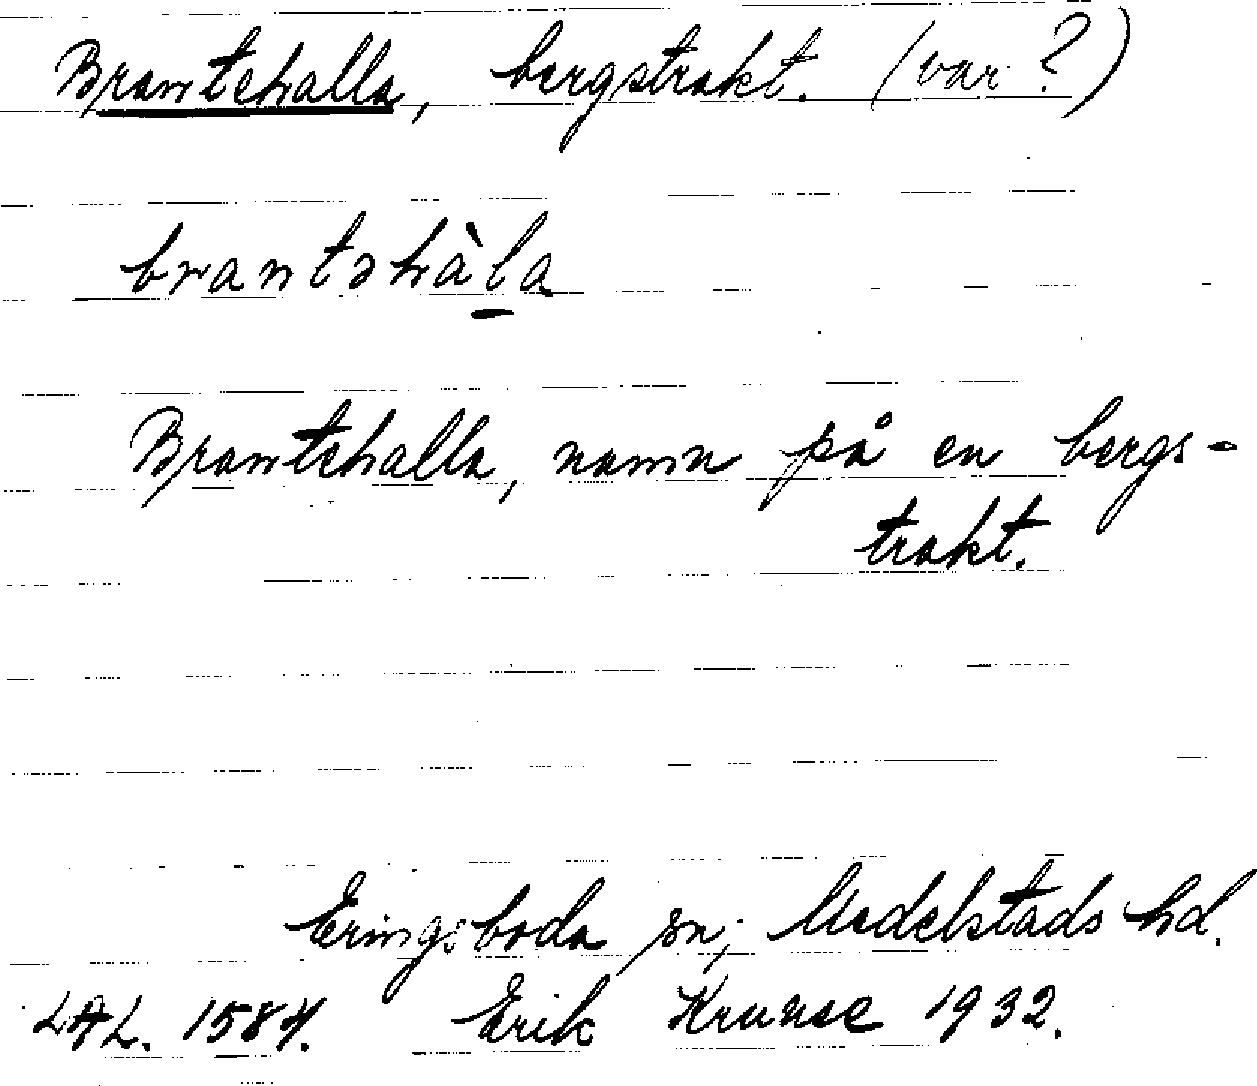 Brantehalla, bergstrakt. (var?)
brantəhàla
Brantehalla, namn på en bergs-
trakt.
Eringsboda sn, Medelstads hd.
LAL. 1584. Erik Kruuse 1932.